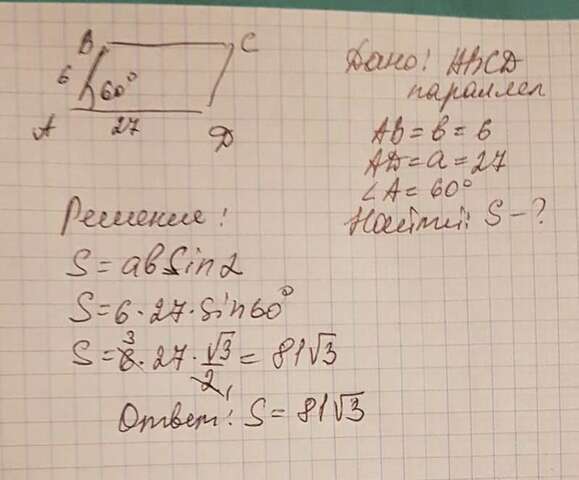 B C
6 60°
A 27 D
Дано: ABCD
параллел
AB = b = 6
AD = a = 27
∠A = 60°
Найти: S - ?
Решение:
S = ab Sin α
S = 6 · 27 · Sin 60°
S = 6 3 · 27 · √3/2 1 = 81√3
Ответ: S = 81√3